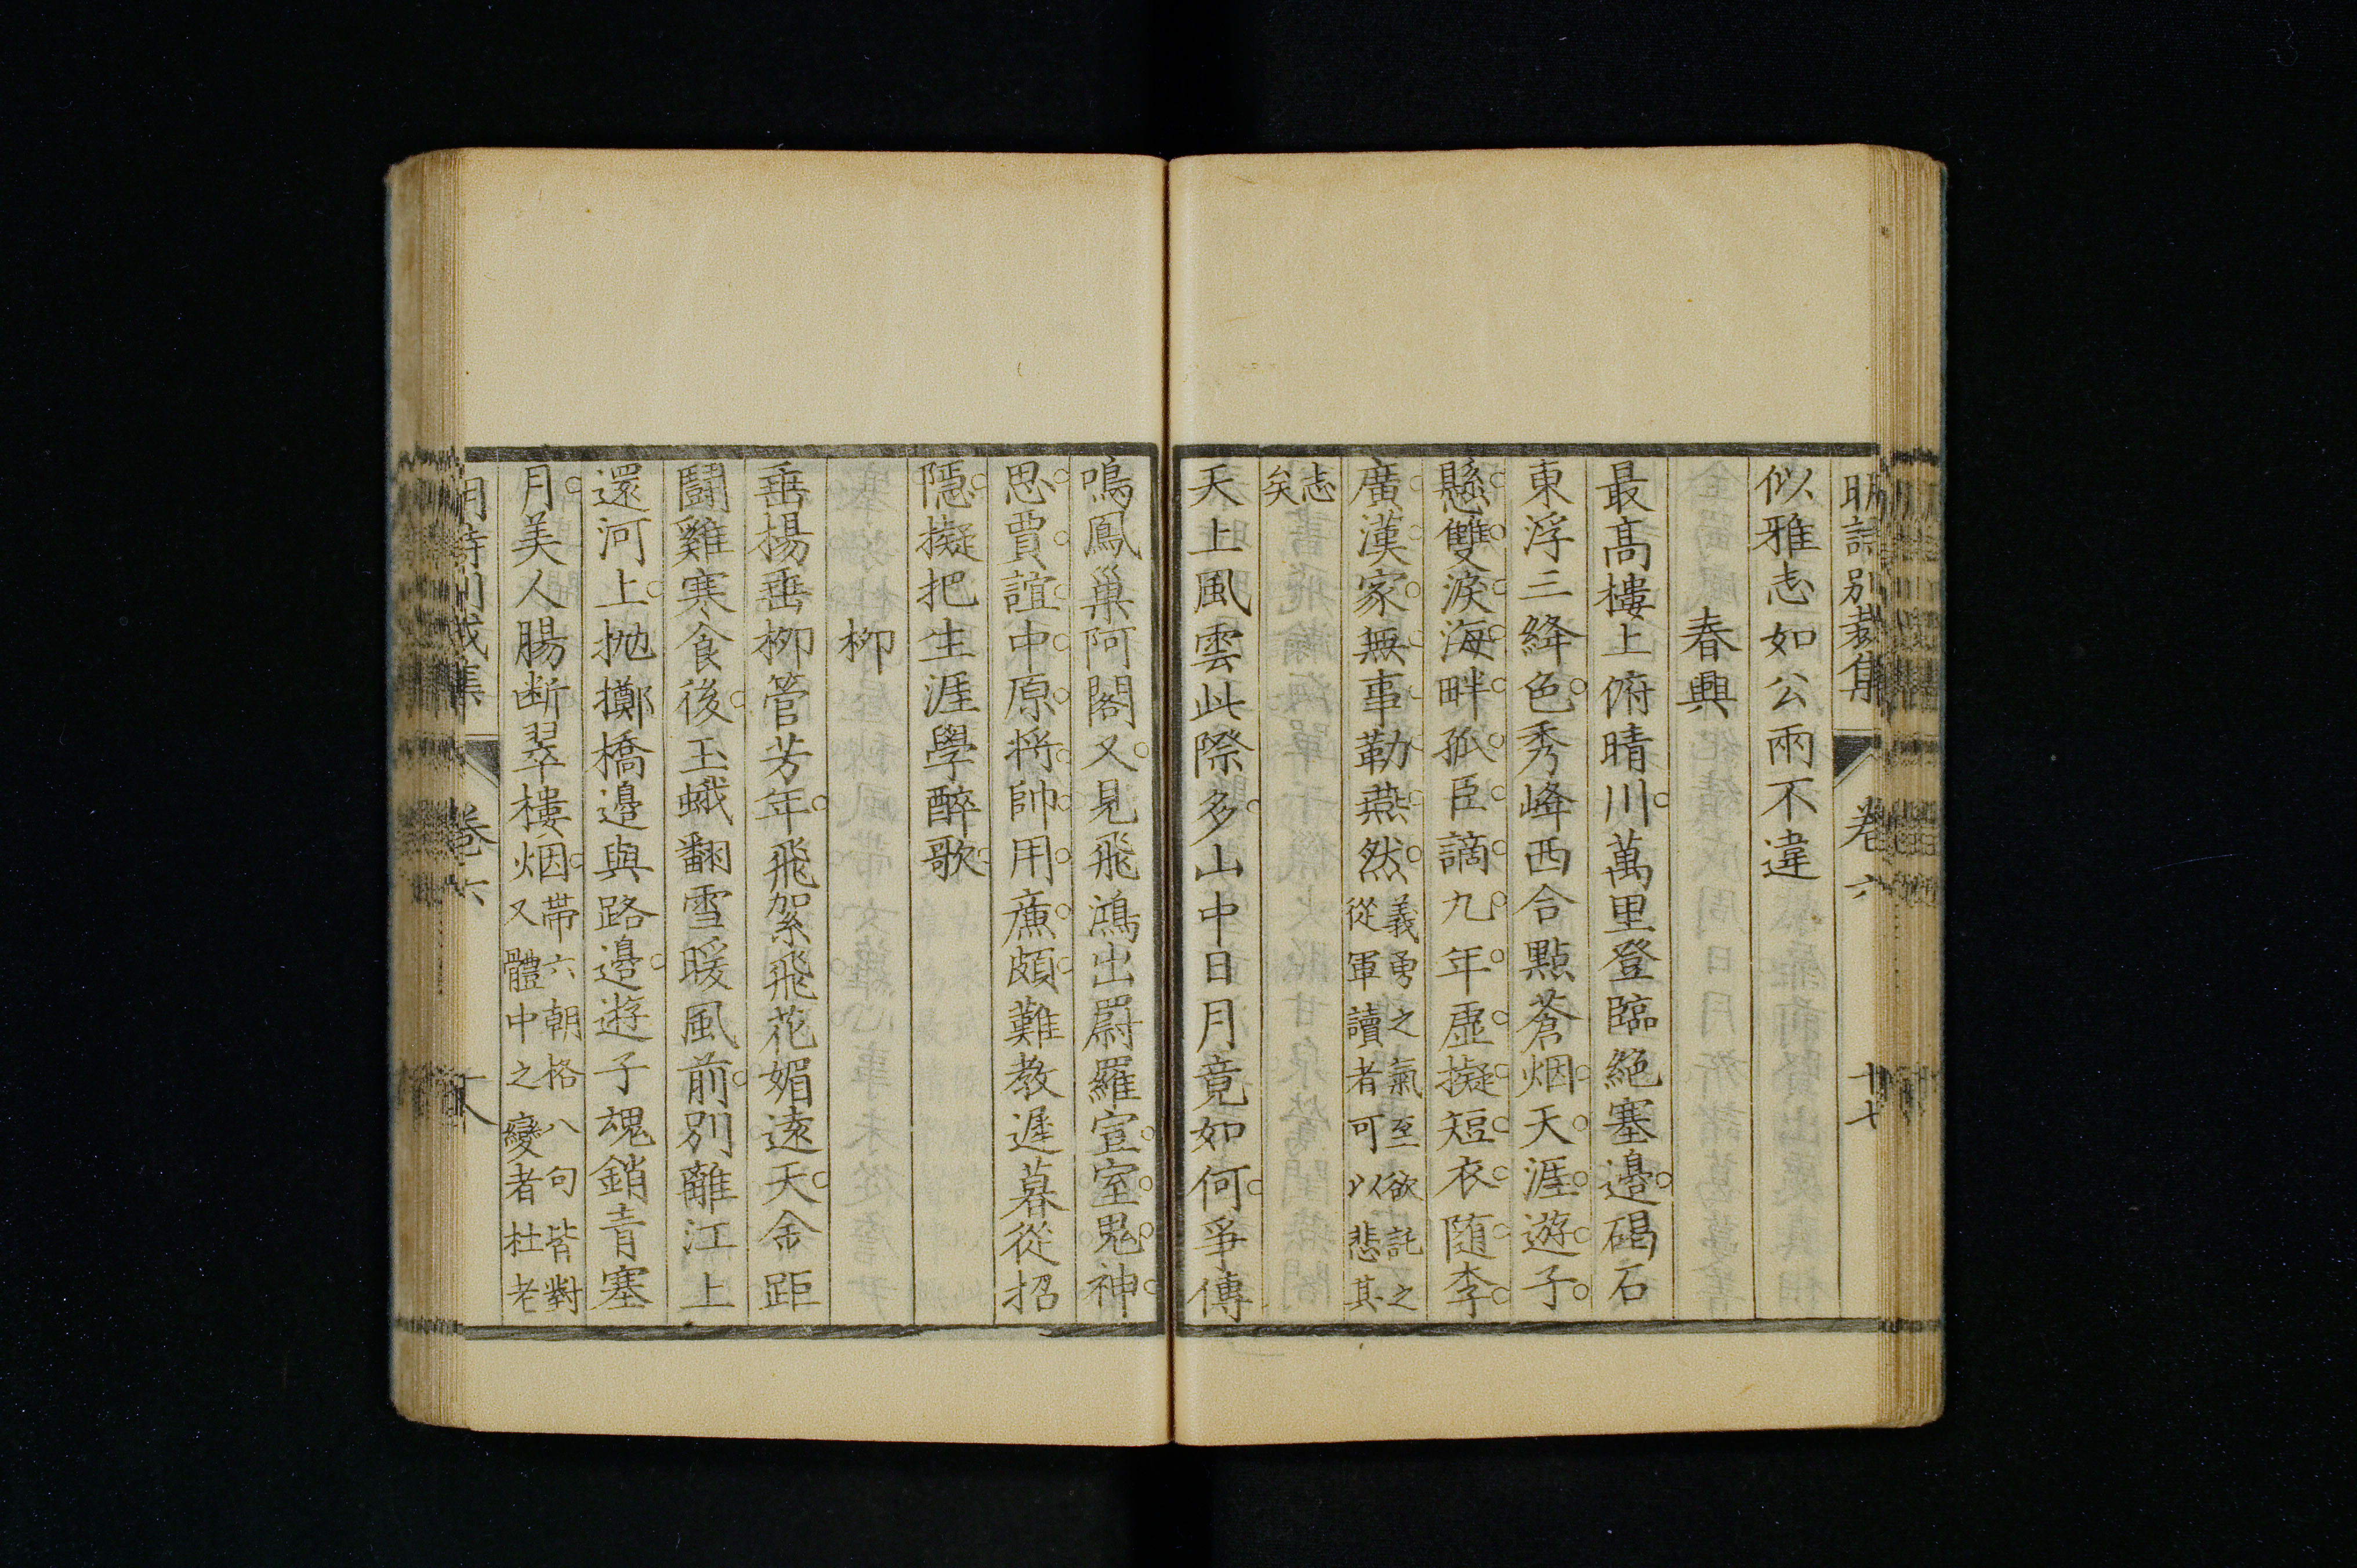 明詩別裁集 卷六 十七
似雅志如公兩不違
春興
最高樓上俯晴川萬里登臨絕塞邊碣石
東浮三絳色秀峰西合點蒼烟天涯遊子
懸雙淚海畔孤臣謫九年虛擬短衣随李
廣漢家無事勒燕然義勇之氣至欲託之
從軍讀者可以悲其
志
矣
天上風雲此際多山中日月竟如何爭傳
鳴鳳巢阿閣又見飛鴻出罻羅宣室鬼神
思賈誼中原將帥用廉頗難教遲暮從招
隱擬把生涯學醉歌
栁
垂楊垂栁管芳年飛絮飛花媚遠天金距
鬪雞寒食後玉蛾翻雪暖風前別離江上
還河上抛擲橋邊與路邊遊子魂銷青塞
月美人腸断翠樓烟帶六朝格八句皆對
又體中之變者杜老
明詩別裁集 卷六 十八